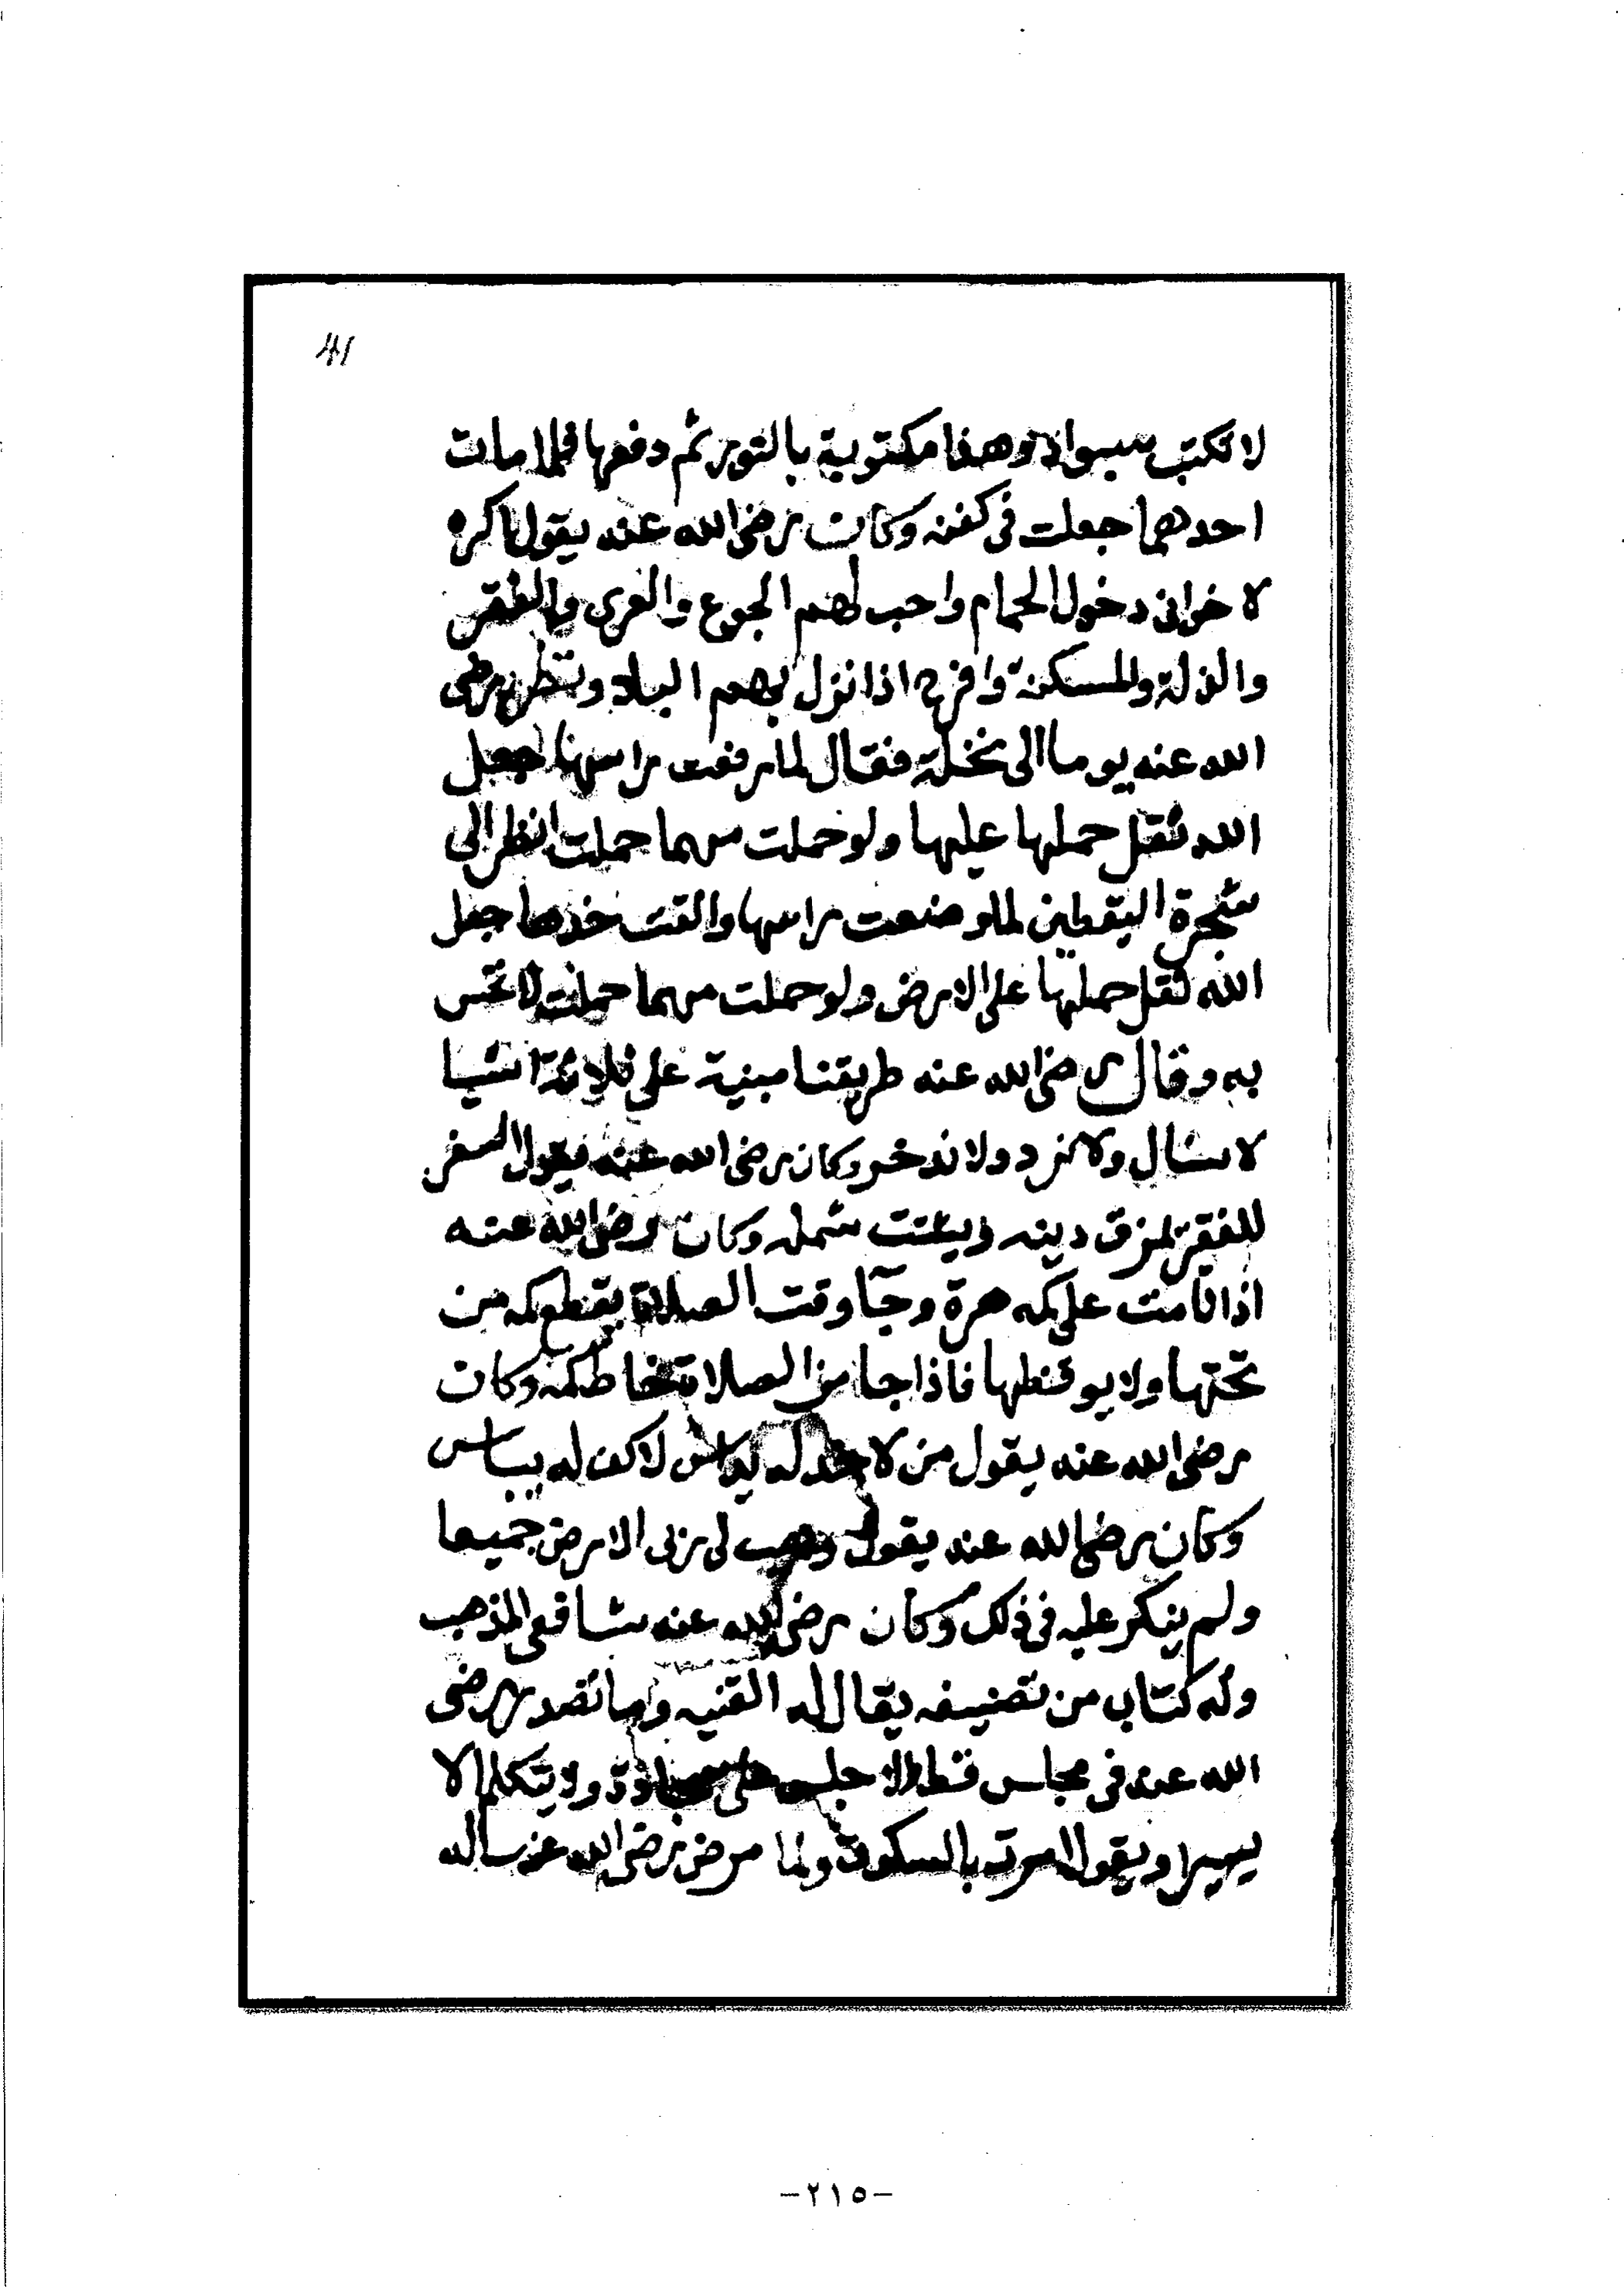 ٤١
لا تكتب بسواد وهذا مكتوبة بالنور ثم دفعها فلما مات
احدهما جعلت فى كفنه وكان رضى الله عنه يقول اكره
لاخوانى دخول الحمام واحب لهم الجوع والعرى والفقر
والذلة والمسكنة وافرح اذا نزل بهم البلا ونظر رضى
الله عنه يوما الى نخلة فقال لما رفعت راسها جعل
الله ثقل حملها عليها ولو حملت مهما حملت انظر الى
شجرة اليقطين لما وضعت راسها والقت خدها جعل
الله ثقل حملها على الارض ولو حملت مهما حملت لا تحس
به وقال رضى الله عنه طريقنا مبنية على ثلاثة اشيا
لا نسال ولا نرد ولا ندخر وكان رضى الله عنه يقول السفر
للفقير يمزق دينه ويشتت شمله وكان رضى الله عنه
اذا نامت على كمه هرة وجآ وقت الصلاة يقطع كمه من
تحتها ولا يوقظها فاذا جا من الصلاة خاط كمه وكان
رضى الله عنه يقول من لا له لا له بباس
وكان رضى الله عنه يقول وهب لى ربى الارض جميعا
ولم ينكر عليه فى ذلك وكان رضى الله عنه شافعى المذهب
وله كتاب من تصنيفه يقال له وما تصدر رضى
الله عنه فى مجلس قط الا جلس على ولا يتكلم الا
يسيرا ويقول امرت بالسكوت ولما مرض رضى الله عنه ساله
-٢١٥-